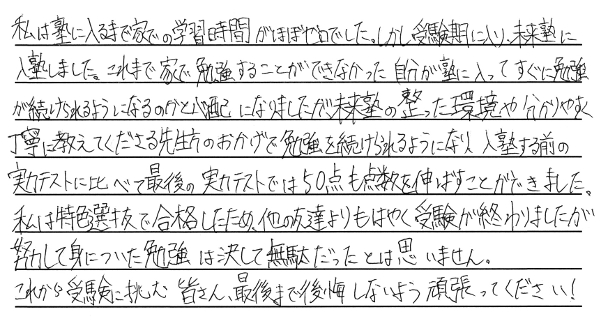 私は塾に入るまで家での学習時間がほぼゼロでした。しかし受験期に入り、未来塾に
入塾しました。これまで家で勉強することができなかった自分が塾に入ってすぐに勉強
が続けられるようになるのかと心配になりましたが未来塾の整った環境や分かりやすく
丁寧に教えてくださる先生方のおかげで勉強を続けられるようになり入塾する前の
実力テストに比べて最後の実力テストでは50点も点数を伸ばすことができました。
私は特色選抜で合格したため、他の友達よりもはやく受験が終わりましたが
努力して身についた勉強は決して無駄だったとは思いません。
これから受験に挑む皆さん、最後まで後悔しないよう頑張ってください！